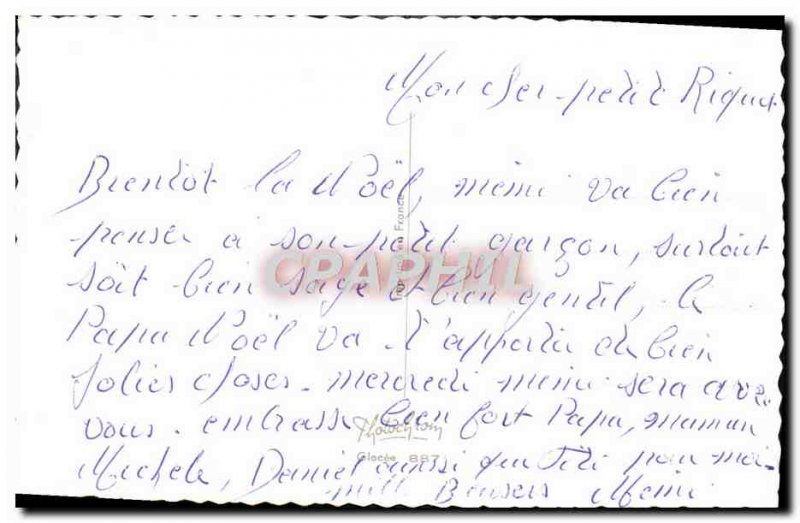 Mon cher petit Riquet
Bientôt la Noël, mémé va bien
penser à son petit garçon, surtout
soit bien sage et bien gentil, le
Papa Noël va t'apporter de bien
jolies choses. mercredi mémé sera avec
vous. embrasse bien fort Papa, maman
Michele, Daniel aussi que Titi pour moi
mille Baisers Mémé
CPAPHIL
en France
Photochrom
Glacée 887